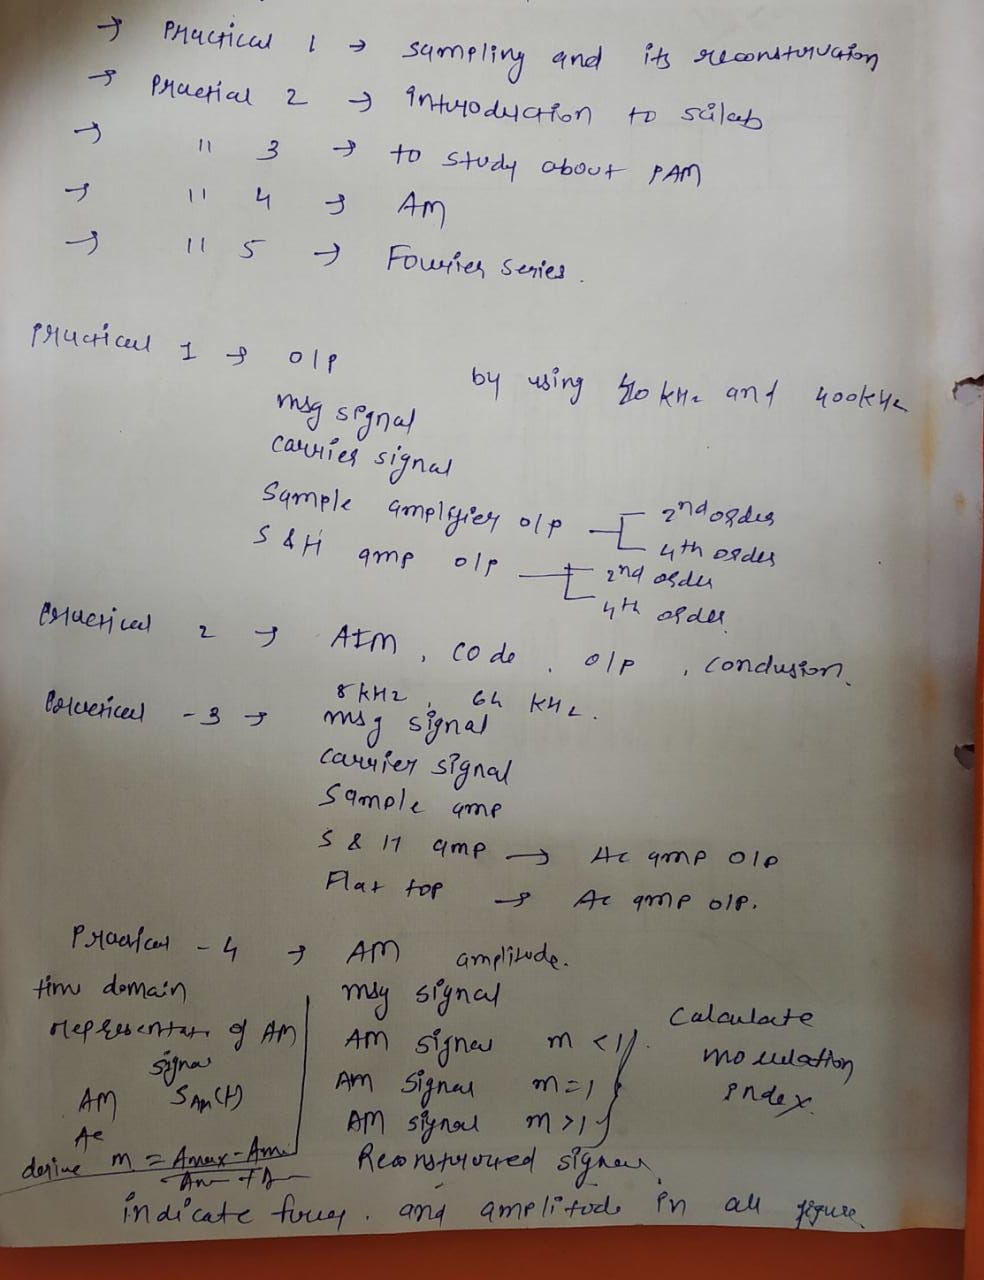 → Practical 1 → sampling and its reconstruction
→ Practial 2 → introduction to scilab
→ " 3 → to study about PAM
→ " 4 → AM
→ " 5 → Fourier series.
Practical 1 → o/p by using 40 kHz and 400kHz
msg signal
carrier signal
Sample amplifier o/p 2nd order
4th order
S & H amp o/p 2nd order
4th order
Practical 2 → AIM, code, o/p, conclusion.
8 kHz, 64 kHz.
Practical - 3 → msg signal
carrier signal
Sample amp
S & H amp → Ac amp o/p
Flat top → Ac amp o/p.
Practical - 4 → AM amplitude.
time domain
representan of AM
signal
AM SAm(t)
Ac
derive m = Amax - Am
Am + A
msg signal
AM signal m < 1
AM signal m = 1
AM signal m > 1
Calculate
modulation
index.
Reconstructed signal
indicate freq. and amplitude in all figure.